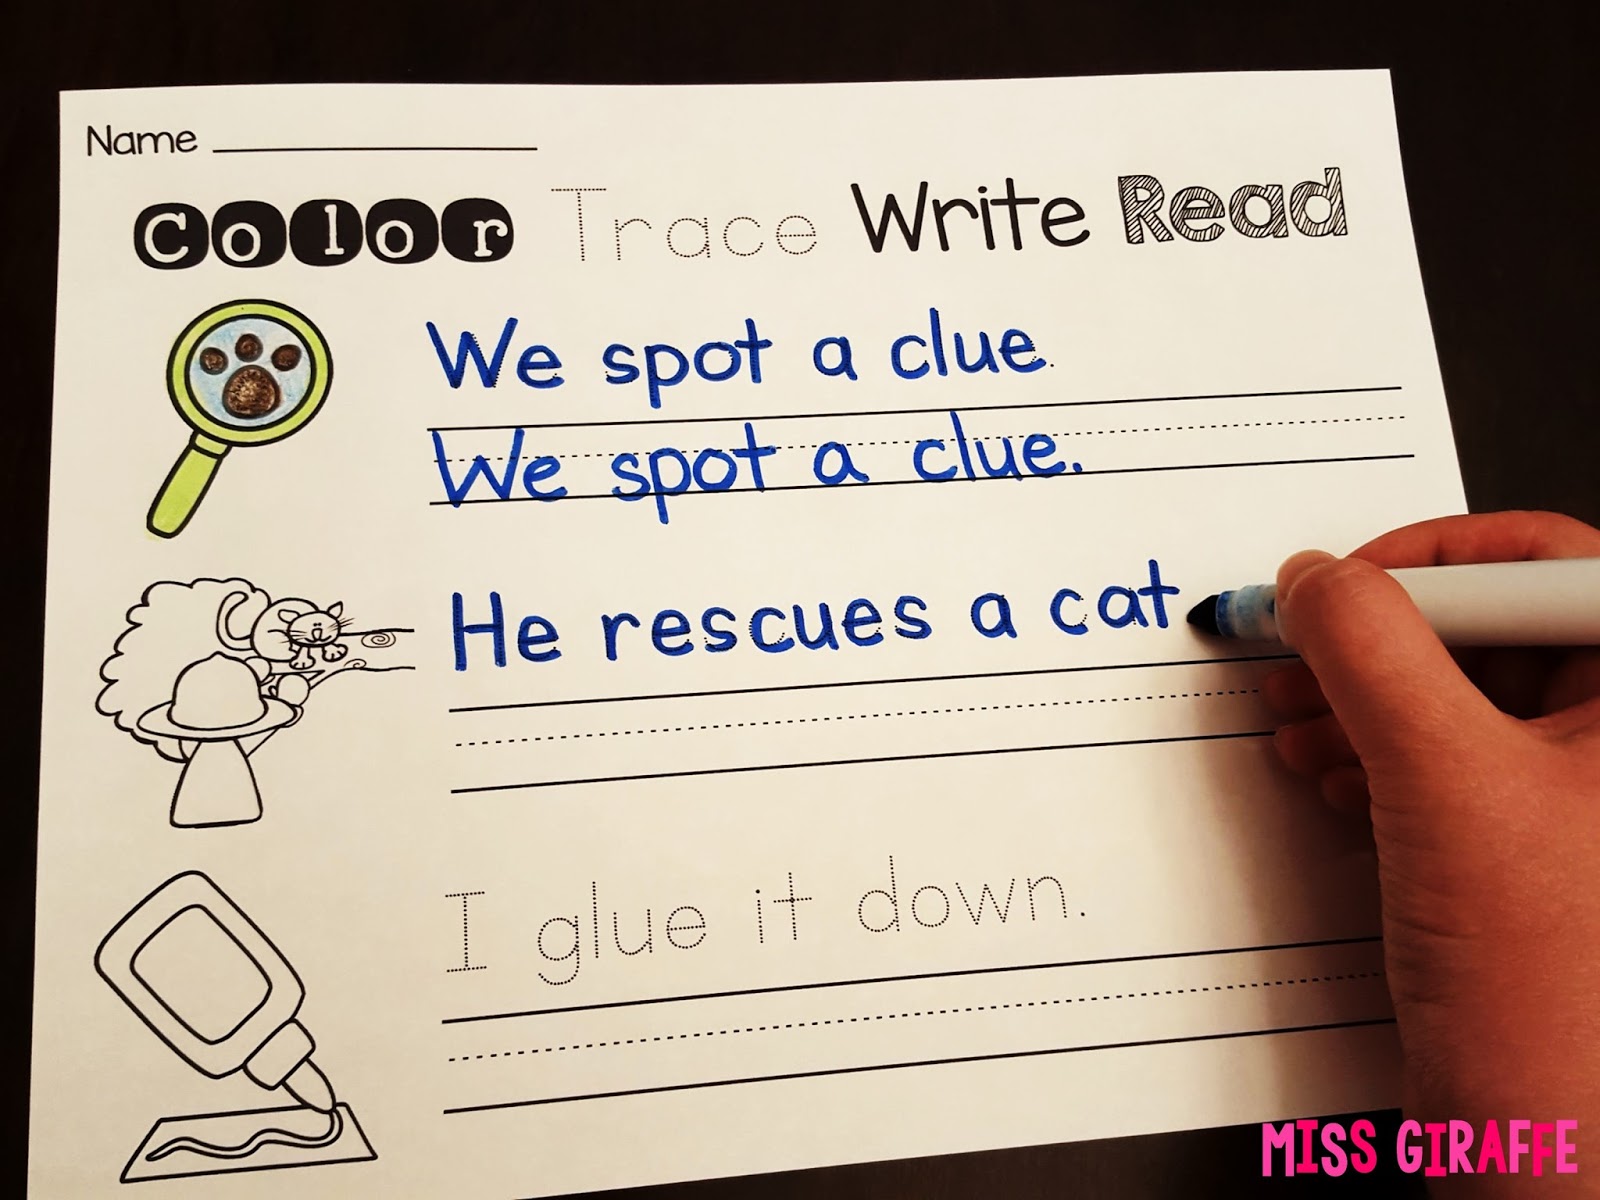 Name
Color Trace Write Read
We spot a clue.
We spot a clue.
He rescues a cat
I glue it down.
MISS GIRAFFE